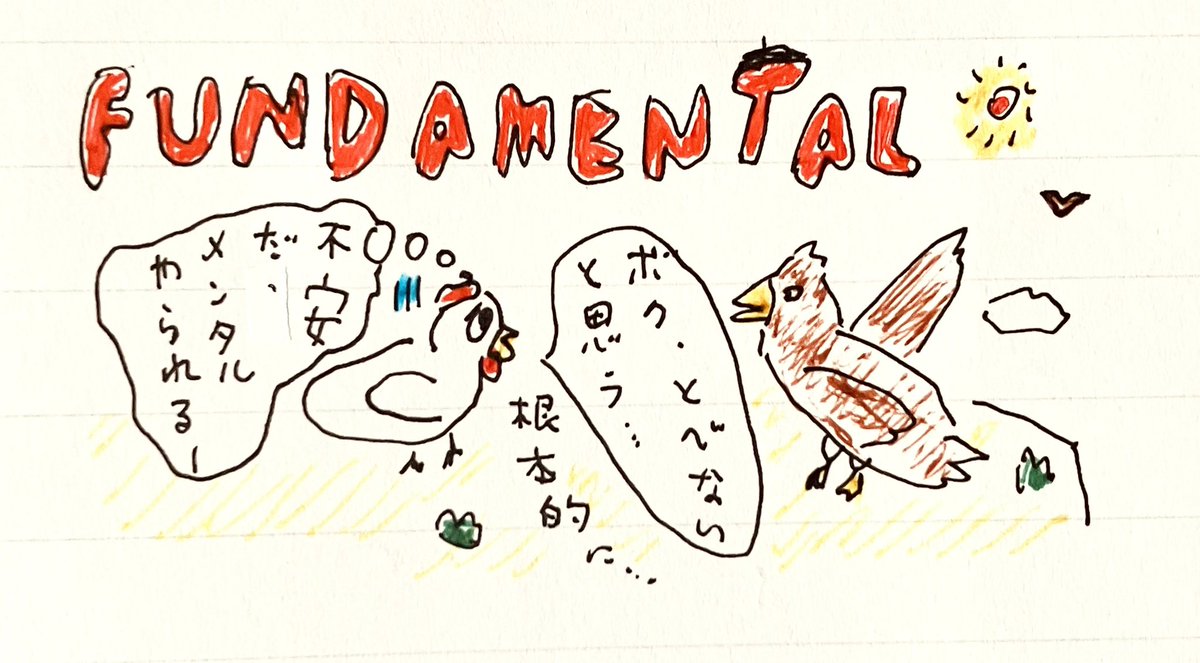 FUNDAMENTAL
ボク、とべない
と思う…
根本的
に…
不安
だ、
メンタル
やられるー